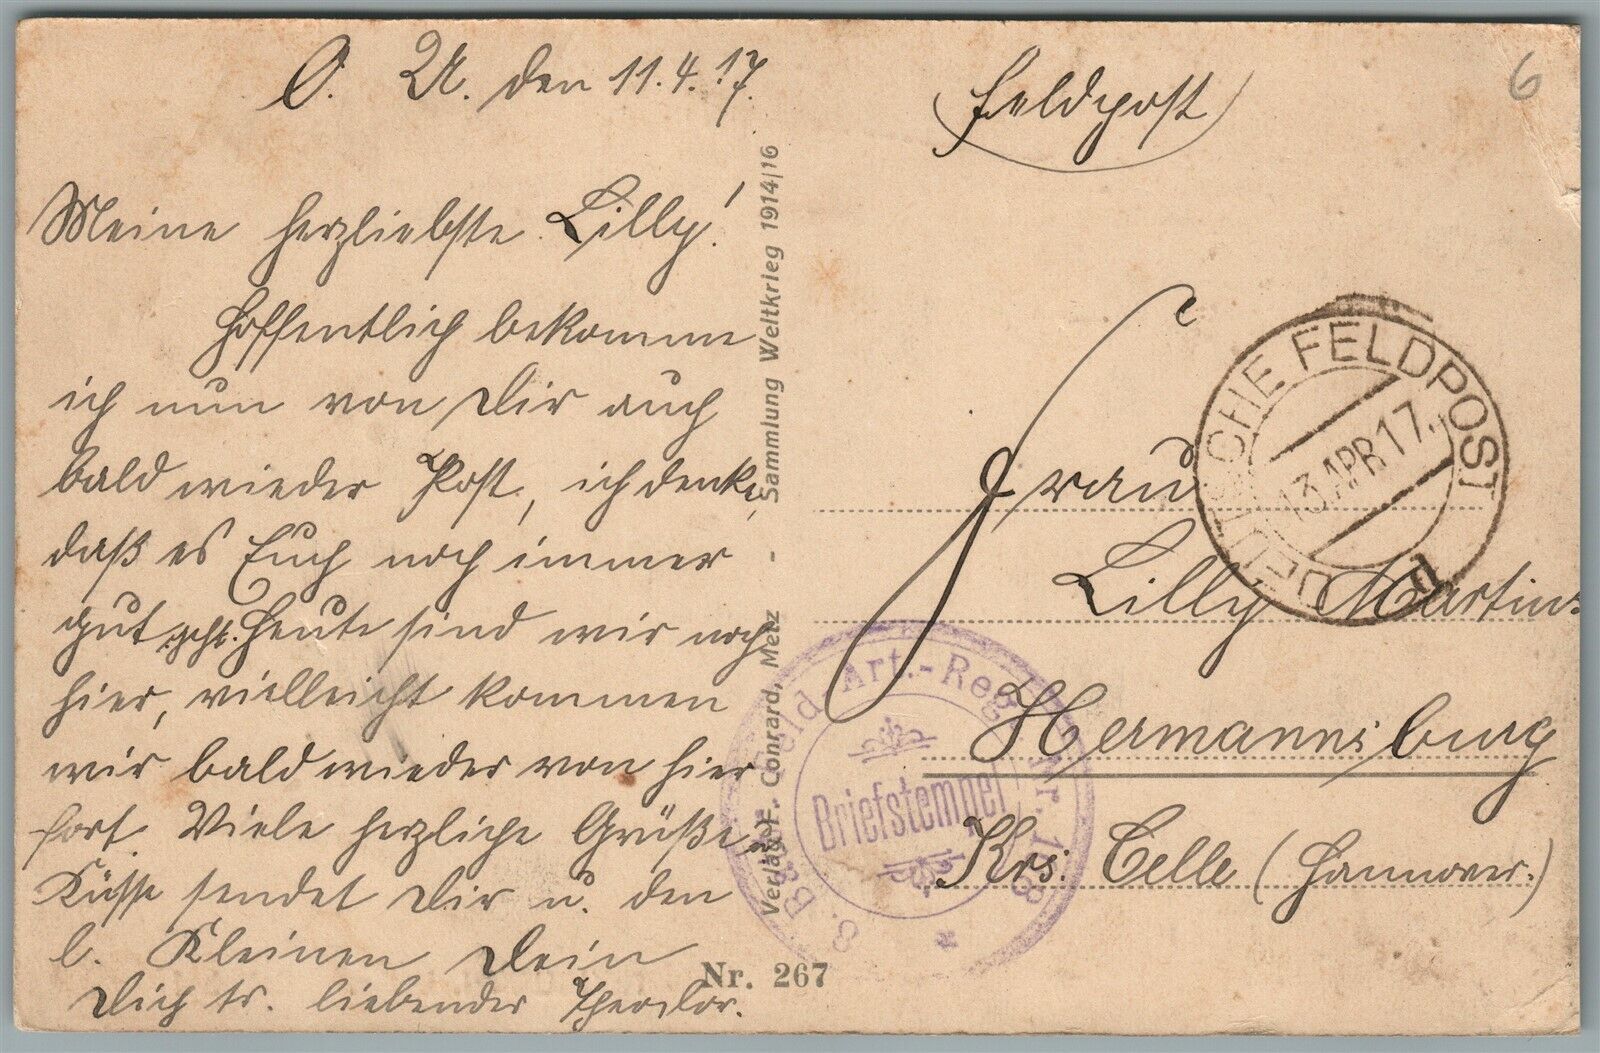 O. U. den 11.4.17.
Meine herzliebste Lilly!
Hoffentlich bekomme
ich nun von Dir auch
bald wieder Post, ich denke,
daß es Euch noch immer
gut geht. Heute sind wir noch
hier, vielleicht kommen
wir bald wieder von hier
fort. Viele herzliche Grüße u.
Küsse sendet Dir u. den
l. Kleinen Dein
Dich tr. liebender Theodor.
Verlag F. Conrard, Metz - Sammlung Weltkrieg 1914/16
Nr. 267
Feldpost
6
DEUTSCHE FELDPOST
13 APR 17.
Frau
Lilly Martin
Hermannsburg
Krs. Celle (Hannover.)
Feld-Art.-Reg. Nr.
Briefstempel
8. Batt.